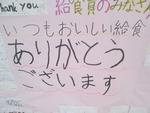 Thank you
給食員のみなさん
いつもおいしい給食
ありがとう
ございます